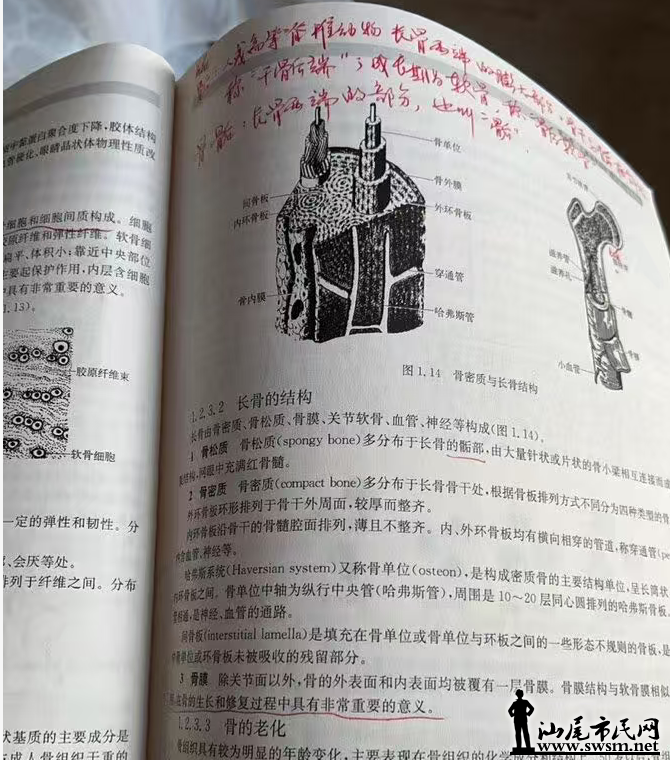 骨骺：长骨两端的部分，也叫“骺”
骨单位
骨外膜
外环骨板
间骨板
内环骨板
穿通管
骨内膜
哈弗斯管
滋养管
滋养孔
小血管
图 1.14 骨密质与长骨结构
1.2.3.2 长骨的结构
长骨由骨密质、骨松质、骨膜、关节软骨、血管、神经等构成(图 1.14)。
1 骨松质 骨松质(spongy bone)多分布于长骨的骺部，由大量针状或片状的骨小梁相互连接而成
结构，网眼中充满红骨髓。
2 骨密质 骨密质(compact bone)多分布于长骨骨干处，根据骨板排列方式不同分为四种类型的骨
外环骨板环形排列于骨干外周面，较厚而整齐。
内环骨板沿骨干的骨髓腔面排列，薄且不整齐。内、外环骨板均有横向相穿的管道，称穿通管(pe
内含血管、神经等。
哈弗斯系统(Haversian system)又称骨单位(osteon)，是构成密质骨的主要结构单位，呈长筒状
内环骨板之间。骨单位中轴为纵行中央管(哈弗斯管)，周围是 10～20 层同心圆排列的哈弗斯骨板
相通，是神经、血管的通路。
间骨板(interstitial lamella)是填充在骨单位或骨单位与环板之间的一些形态不规则的骨板，是
骨单位或环骨板未被吸收的残留部分。
3 骨膜 除关节面以外，骨的外表面和内表面均被覆有一层骨膜。骨膜结构与软骨膜相似
在骨的生长和修复过程中具有非常重要的意义。
1.2.3.3 骨的老化
骨组织具有较为明显的年龄变化，主要表现在骨组织的化学
蛋白聚合度下降，胶体结构
硬化、眼睛晶状体物理性质改
细胞和细胞间质构成。细胞
胶原纤维和弹性纤维。软骨细
扁平、体积小；靠近中央部位
主要起保护作用，内层含细胞
中具有非常重要的意义。
1.13)。
胶原纤维束
软骨细胞
一定的弹性和韧性。分
、会厌等处。
排列于纤维之间。分布
状基质的主要成分是
成人骨组织干重的
汕尾市民网
www.swsm.net